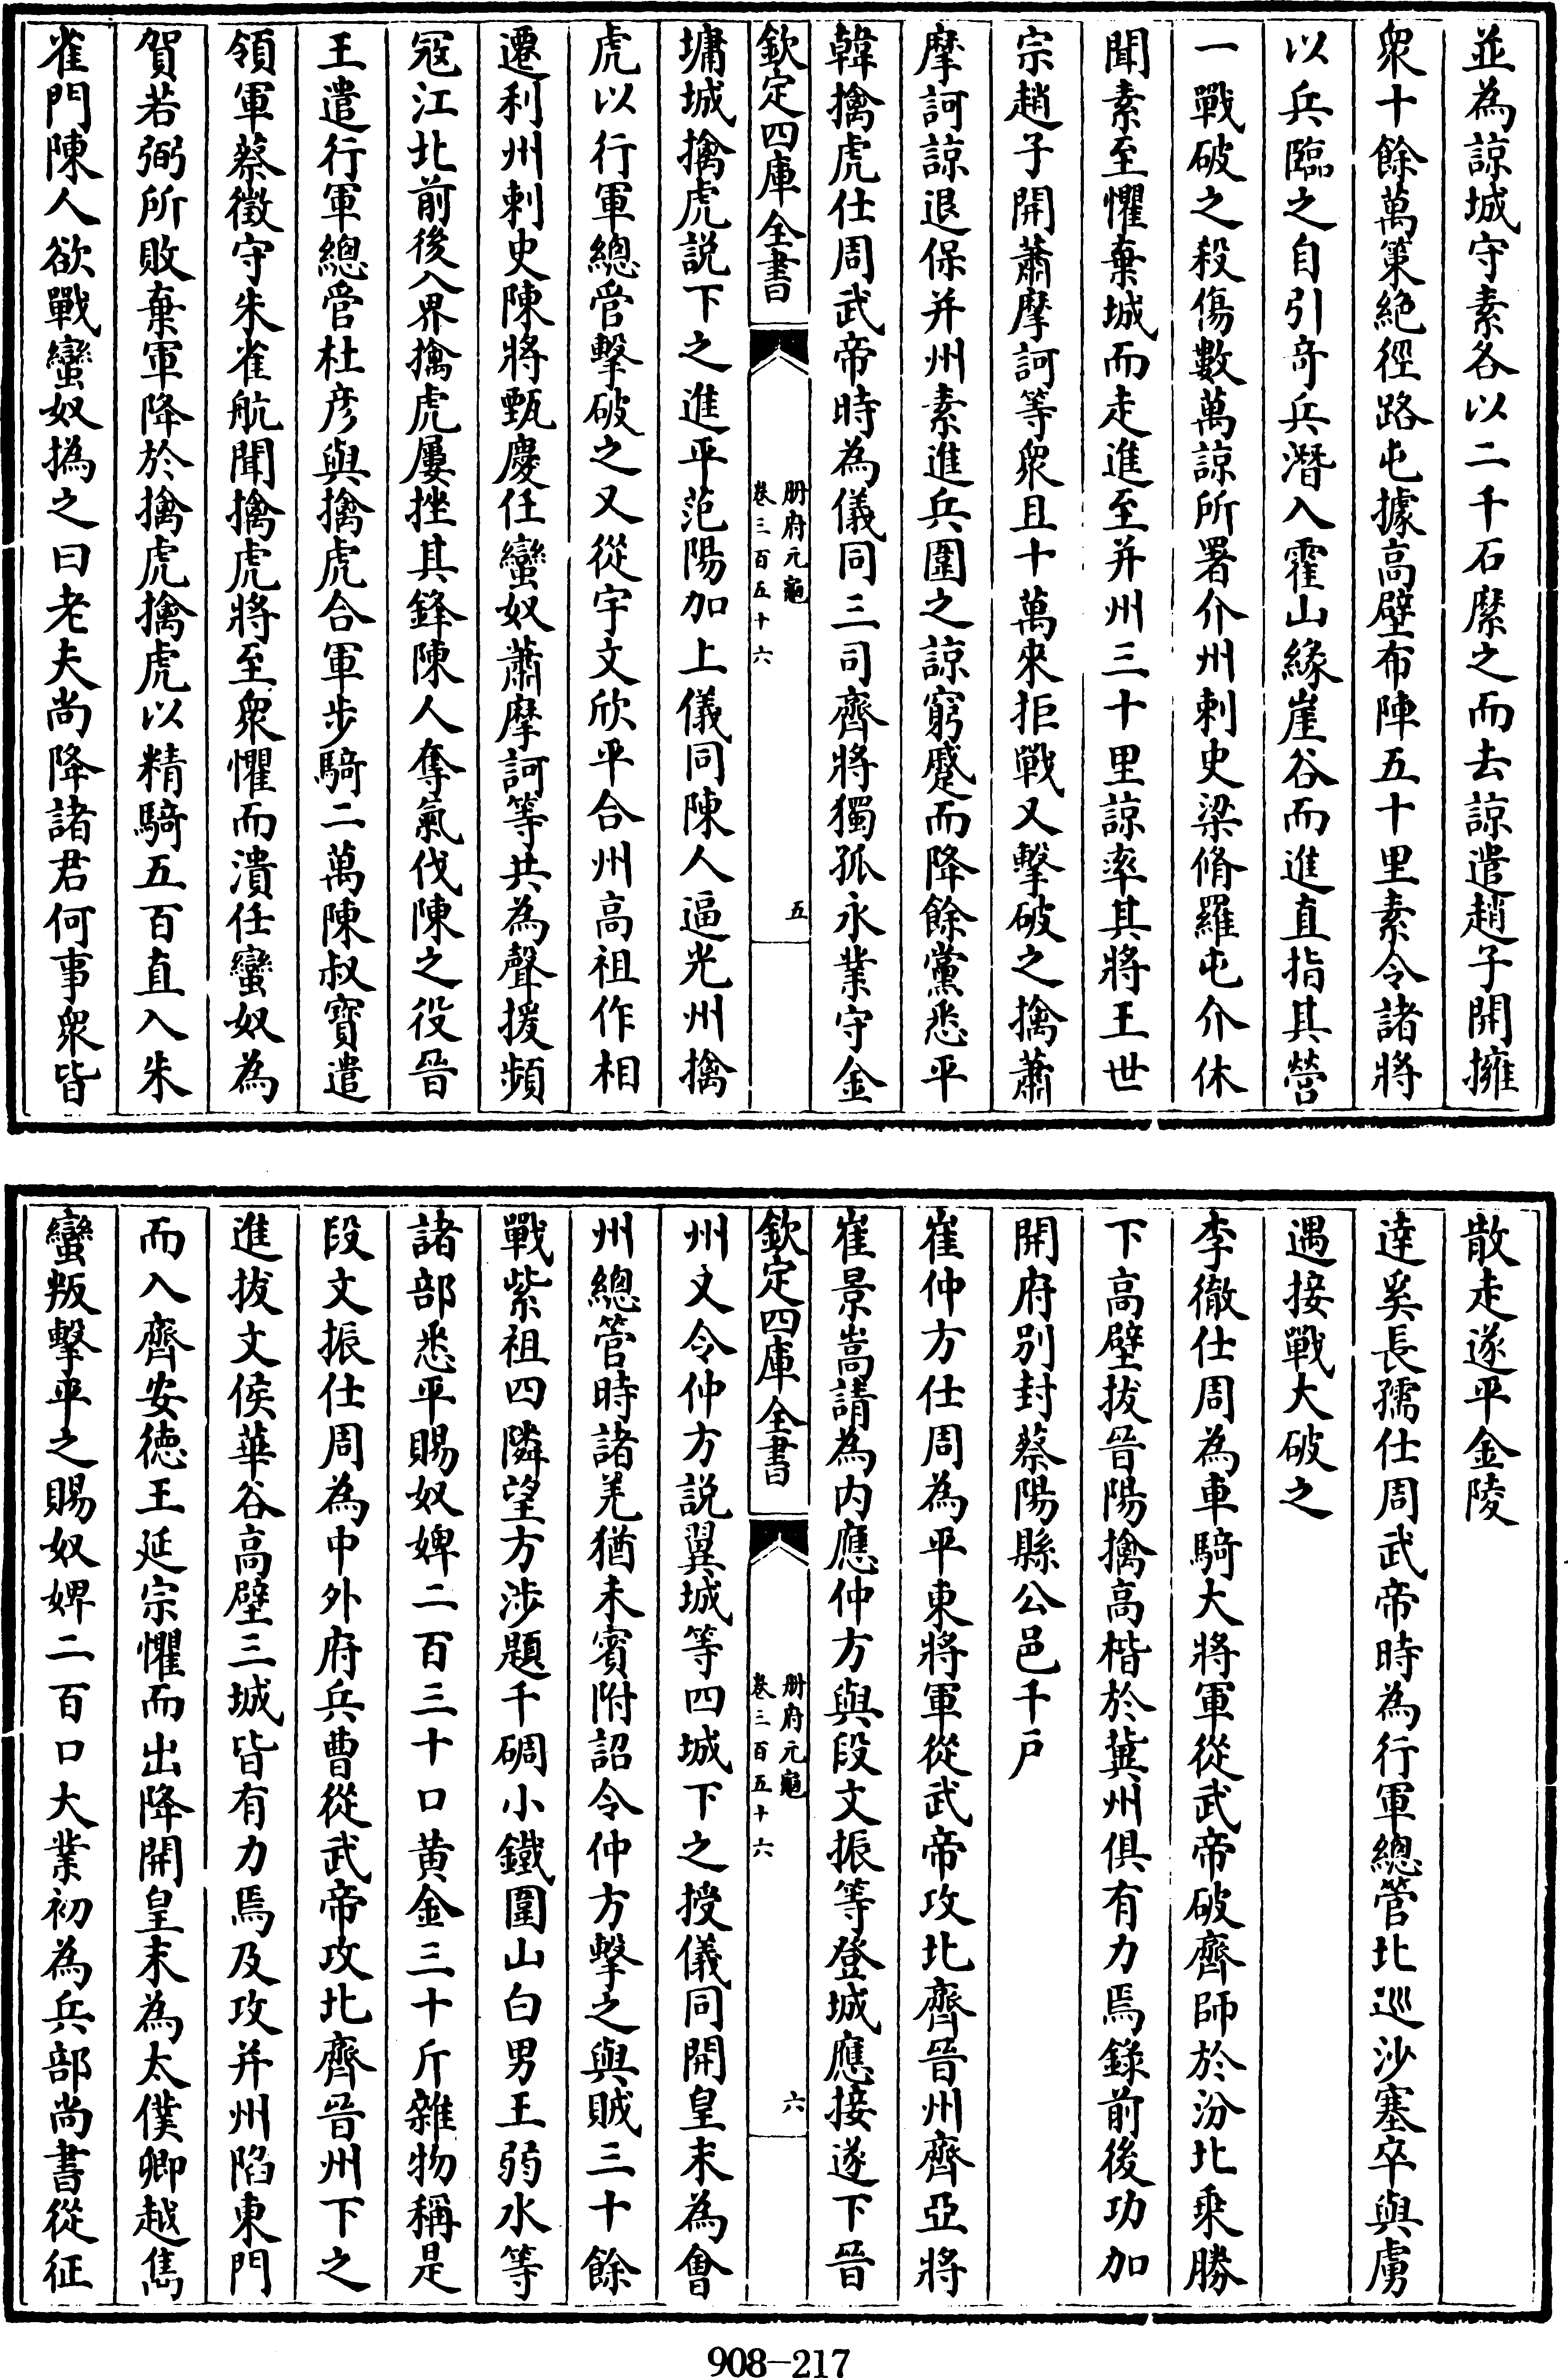 並為諒城守素各以二千石縻之而去諒遣趙子開擁
衆十餘萬䇿絶徑路屯據高壁布陣五十里素令諸將
以兵臨之自引竒兵潛入霍山緣崖谷而進直指其營
一戰破之殺傷數萬諒所署介州刺史梁脩羅屯介休
聞素至懼棄城而走進至并州三十里諒率其將王世
宗趙子開蕭摩訶等衆且十萬來拒戰又擊破之擒蕭
摩訶諒退保并州素進兵圍之諒窮蹙而降餘黨悉平
韓擒虎仕周武帝時為儀同三司齊將獨孤永業守金
欽定四庫全書
冊府元龜
卷三百五十六
五
墉城擒虎説下之進平范陽加上儀同陳人逼光州擒
虎以行軍總管擊破之又從宇文欣平合州高祖作相
遷利州刺史陳將甄慶任蠻奴蕭摩訶等共為聲援頻
冦江北前後入界擒虎屢挫其鋒陳人奪氣伐陳之役晉
王遣行軍總管杜彦與擒虎合軍步騎二萬陳叔寶遣
領軍蔡徵守朱雀航聞擒虎將至衆懼而潰任蠻奴為
賀若弼所敗棄軍降於擒虎擒虎以精騎五百直入朱
雀門陳人欲戰蠻奴撝之曰老夫尚降諸君何事衆皆
散走遂平金陵
逹奚長孺仕周武帝時為行軍總管北巡沙塞卒與虜
遇接戰大破之
李徹仕周為車騎大將軍從武帝破齊師於汾北乗勝
下高壁拔晉陽擒高楷於冀州俱有力焉錄前後功加
開府别封蔡陽縣公邑千戶
崔仲方仕周為平東將軍從武帝攻北齊晉州齊亞將
崔景嵩請為内應仲方與段文振等登城應接遂下晉
欽定四庫全書
冊府元龜
卷三百五十六
六
州又令仲方説翼城等四城下之授儀同開皇末為會
州總管時諸羌猶未賓附詔令仲方擊之與賊三十餘
戰紫祖四隣望方涉題千碉小鐵圍山白男王弱水等
諸部悉平賜奴婢二百三十口黄金三十斤雜物稱是
段文振仕周為中外府兵曹從武帝攻北齊晉州下之
進拔文侯華谷高壁三城皆有力焉及攻并州陷東門
而入齊安徳王延宗懼而出降開皇末為太僕卿越嶲
蠻叛擊平之賜奴婢二百口大業初為兵部尚書從征
908-217